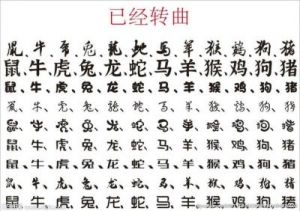 已经转曲
鼠、牛、虎、兔、龍、蛇、馬、羊、猴、鷄、狗、猪
鼠、牛、虎、兔、龙、蛇、马、羊、猴、鸡、狗、猪
鼠、牛、虎、兔、龙、蛇、马、羊、猴、鸡、狗、猪
鼠、牛、虎、兔、龙、蛇、马、羊、猴、鸡、狗、猪
鼠、牛、虎、兔、龙、蛇、马、羊、猴、鸡、狗、猪
鼠、牛、虎、兔、龙、蛇、马、羊、猴、鸡、狗、猪
鼠、牛、虎、兔、龙、蛇、马、羊、猴、鸡、狗、猪
鼠、牛、虎、兔、龙、蛇、马、羊、猴、鸡、狗、猪
鼠、牛、虎、兔、龙、蛇、马、羊、猴、鸡、狗、猪
鼠、牛、虎、兔、龙、蛇、马、羊、猴、鸡、狗、猪